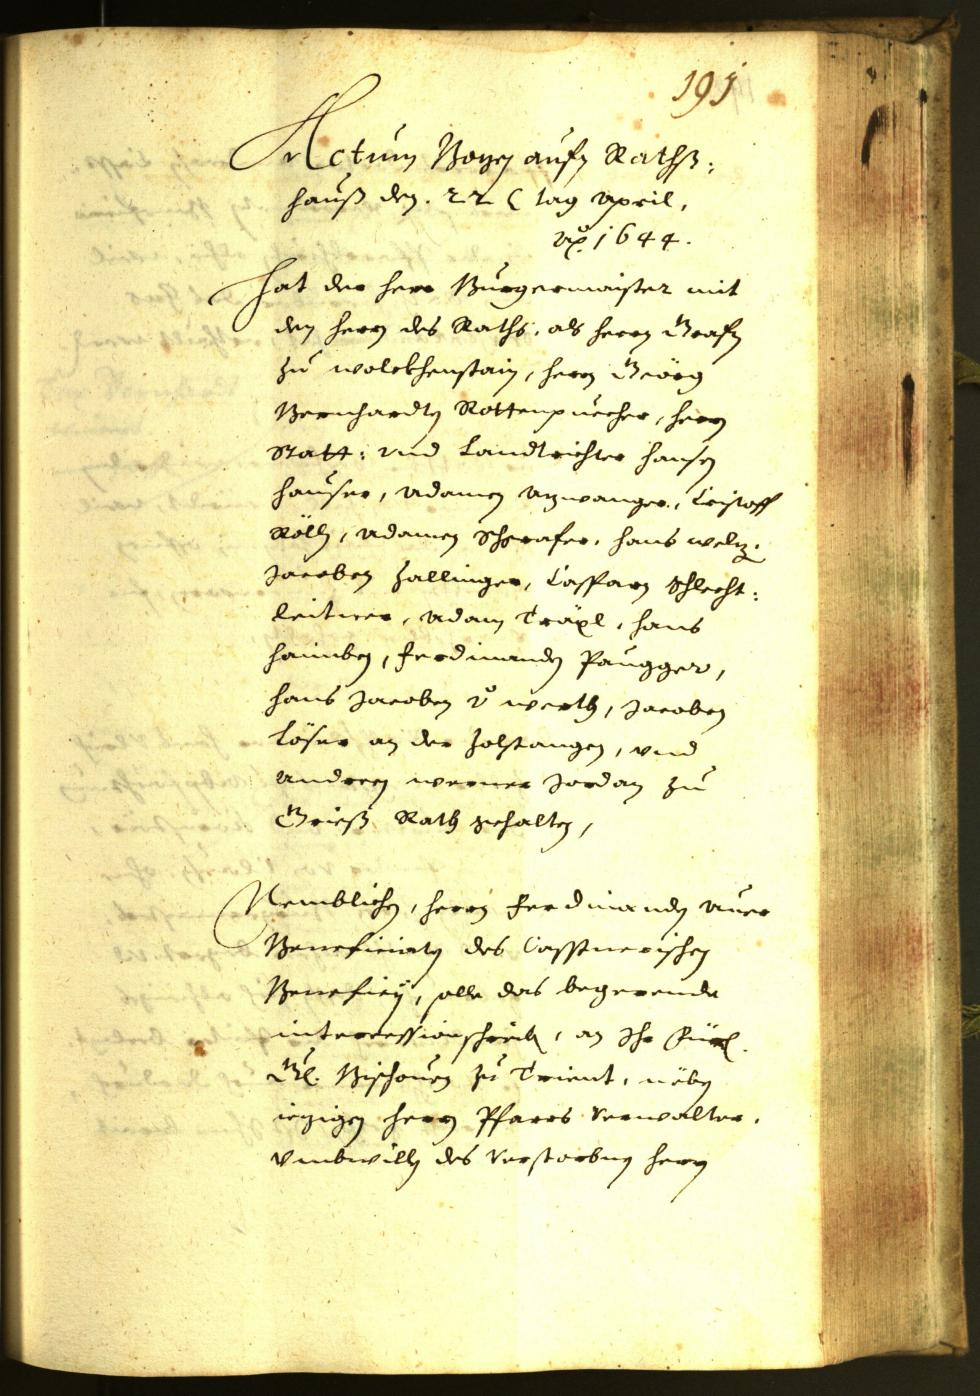 191
Actum Bozen aufn Rathß:
hauß den. 22 tag April,
Ao. 1644.
Hat der herr Burgermaister mit
den herrn des Raths, als herrn Grafn
zu wolckhenstain, herrn Geörg
Bernhardtn Rottenpuecher, herrn
Statt: vnd Landtrichter hansen
hauser, Adamen Azwanger, Cristoff
Rölln, Adamen Schrafer, hans weliz:
Jacoben Zallinger, Casparn Schlecht:
leitner, Adam Träxl, hans
haimben, Ferdinanden Paugger,
hans Jacoben v werth, Jacoben
Löser an der Zolstangen, vnd
Andreen werner Jordan zu
Grieß Rath gehalten,
Nemblichen, herrn Ferdinanden Auer
Beneficiatn des Casstnerischen
Beneficij, solle das begerende
intercessionschreib, an Ihr Fürl.
Gl. Bischouen zu Trient, nebn
iezigen herrn Pfarrs Verwalter.
Vmbwilln des Verstorbnen herrn